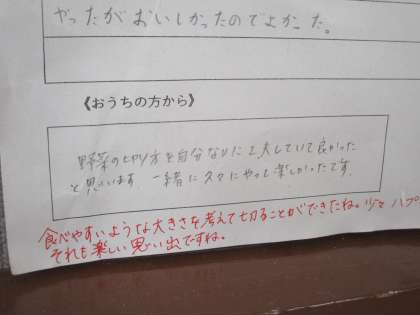 やったがおいしかったのでよかった。
《おうちの方から》
野菜の切り方を自分なりに工夫していて良かった
と思います 一緒に久々にやって楽しかったです
食べやすいような大きさを考えて切ることができたね。少々ハプ
それも楽しい思い出ですね。